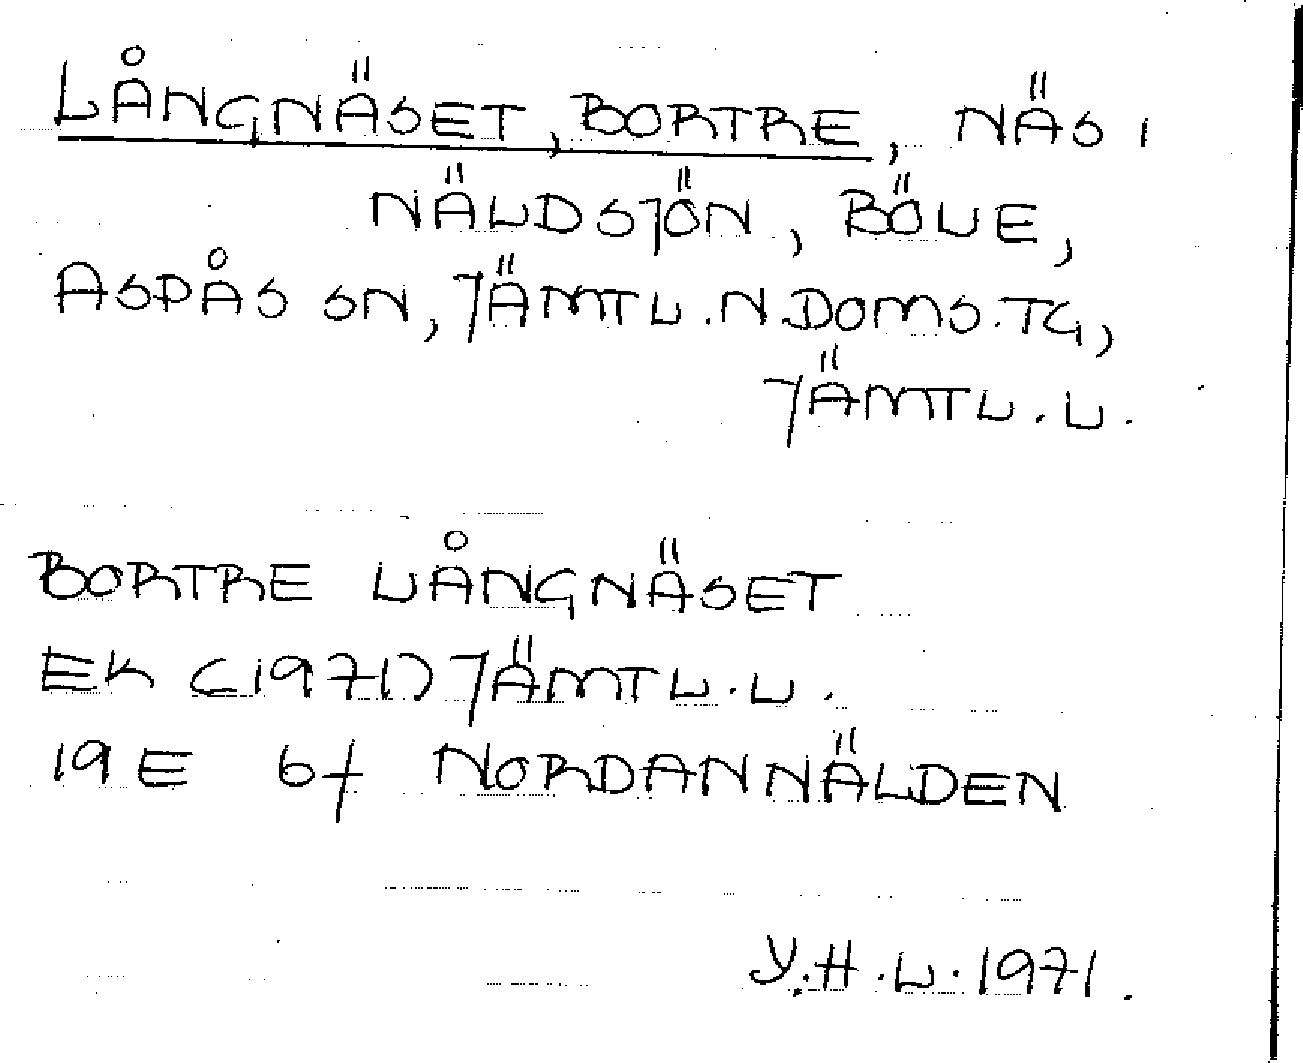 LÅNGNÄSET, BORTRE, NÄS I
NÄLDSJÖN, BÖLE,
ASPÅS SN, JÄMTL.N.DOMS.TG,
JÄMTL.L.
BORTRE LÅNGNÄSET
EK (1971) JÄMTL.L.
19E 6f NORDANNÄLDEN
Y.H.L. 1971.